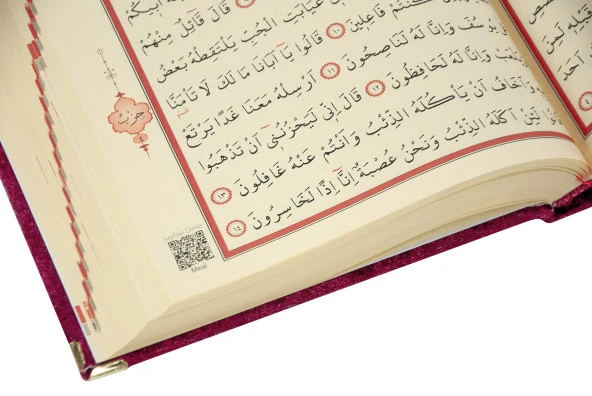 قَالَ قَٓائِلٌ مِنْهُمْ
غَيَابَتِ الْجُبِّ يَلْتَقِطْهُ بَعْضُ
كُنْتُمْ فَاعِلِينَ ﴿١٠﴾ قَالُوا يَٓا اَبَانَا مَا لَكَ لَا تَأْمَنَّا
يُوسُفَ وَاِنَّا لَهُ لَنَاصِحُونَ ﴿١١﴾ اَرْسِلْهُ مَعَنَا غَدًا يَرْتَعْ
وَاِنَّا لَهُ لَحَافِظُونَ ﴿١٢﴾ قَالَ اِنِّى لَيَحْزُنُنِٓى اَنْ تَذْهَبُوا
وَاَخَافُ اَنْ يَأْكُلَهُ الذِّئْبُ وَاَنْتُمْ عَنْهُ غَافِلُونَ ﴿١٣﴾
لَئِنْ اَكَلَهُ الذِّئْبُ وَنَحْنُ عُصْبَةٌ اِنَّٓا اِذًا لَخَاسِرُونَ ﴿١٤﴾
حزب
Sayfayı Dinle
Meal